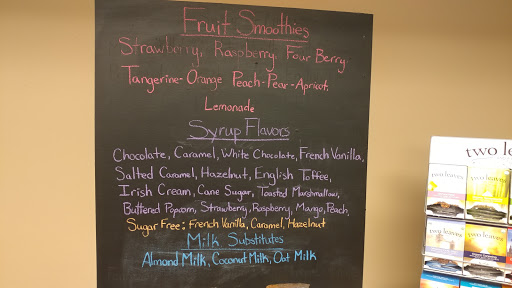 Fruit Smoothies
Strawberry, Raspberry, Four Berry,
Tangerine-Orange Peach-Pear-Apricot,
Lemonade
Syrup Flavors
Chocolate, Caramel, White Chocolate, French Vanilla,
Salted Caramel, Hazelnut, English Toffee,
Irish Cream, Cane Sugar, Toasted Marshmallow,
Buttered Popcorn, Strawberry, Raspberry, Mango, Peach,
Sugar Free: French Vanilla, Caramel, Hazelnut
Milk Substitutes
Almond Milk, Coconut Milk, Oat Milk
two lea
two leaves
two leaves
two leaves
two leaves